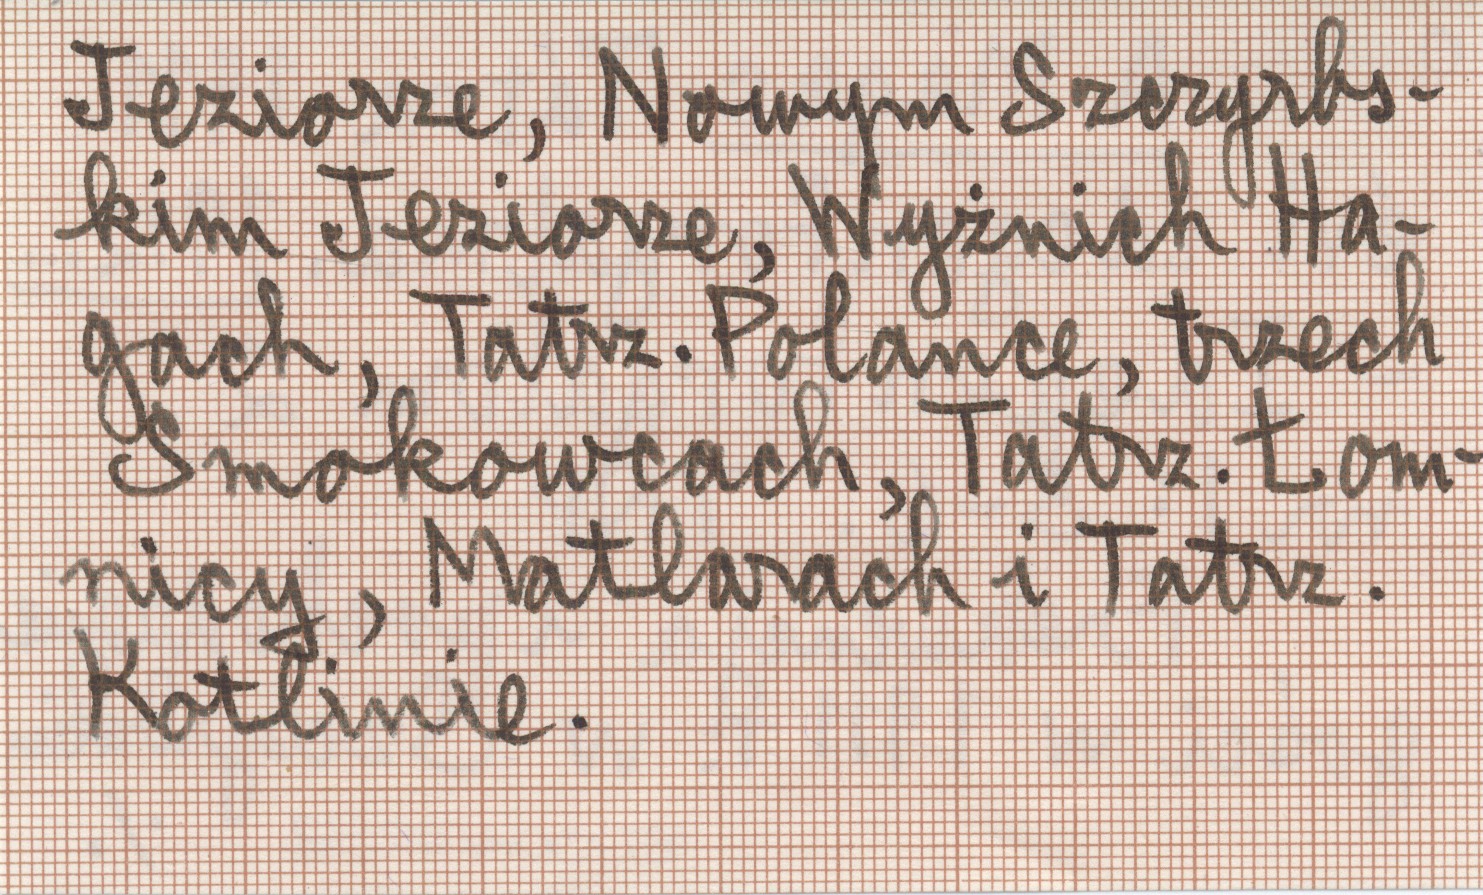 Jeziorze, Nowym Szczyrbs-
kim Jeziorze, Wyżnich Ha-
gach, Tatrz. Polance, trzech
Smokowcach, Tatrz. Łom-
nicy, Matlarach i Tatrz.
Kotlinie.